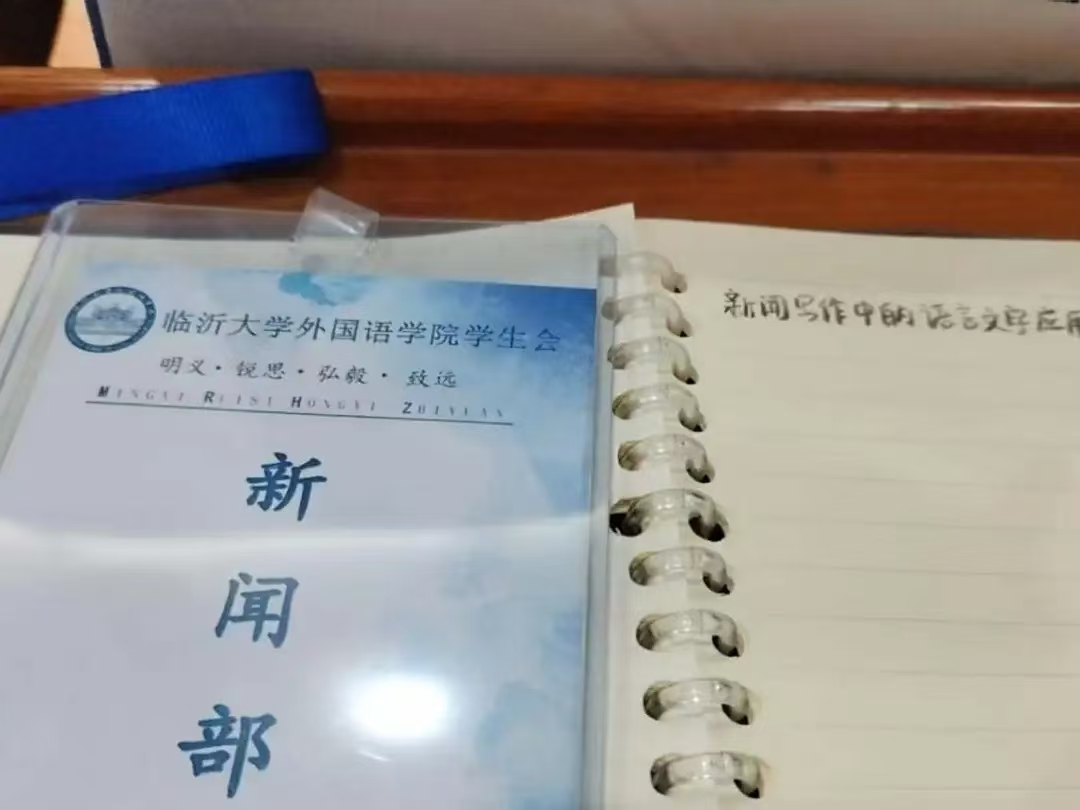 临沂大学外国语学院学生会
明义·锐思·弘毅·致远
MINGYI RUISI HONGYI ZHIYUAN
新
闻
部
新闻写作中的语言文字应用